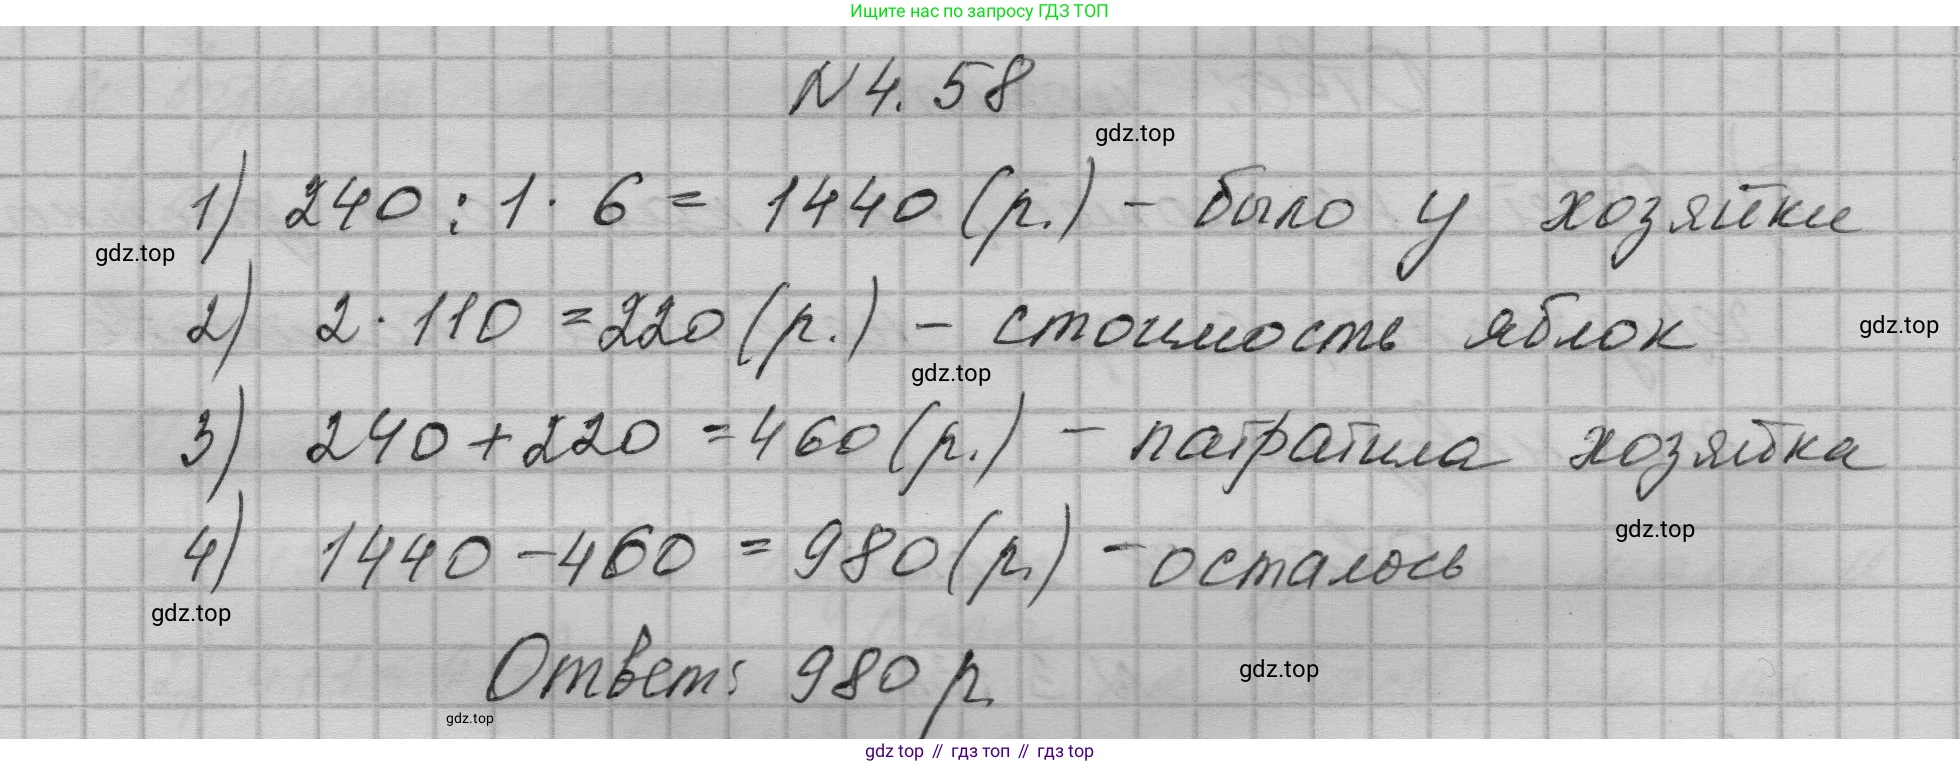 Ищите нас по запросу ГДЗ ТОП
N 4. 58
gdz.top
1) 240 : 1 · 6 = 1440 (р.) - было у хозяйки
gdz.top
2) 2 · 110 = 220 (р.) - стоимость яблок
gdz.top
gdz.top
3) 240 + 220 = 460 (р.) - патратила хозяйка
gdz.top
4) 1440 - 460 = 980 (р.) - осталось
gdz.top
Ответ: 980 р.
gdz.top
gdz.top
gdz top // гдз топ // гдз top